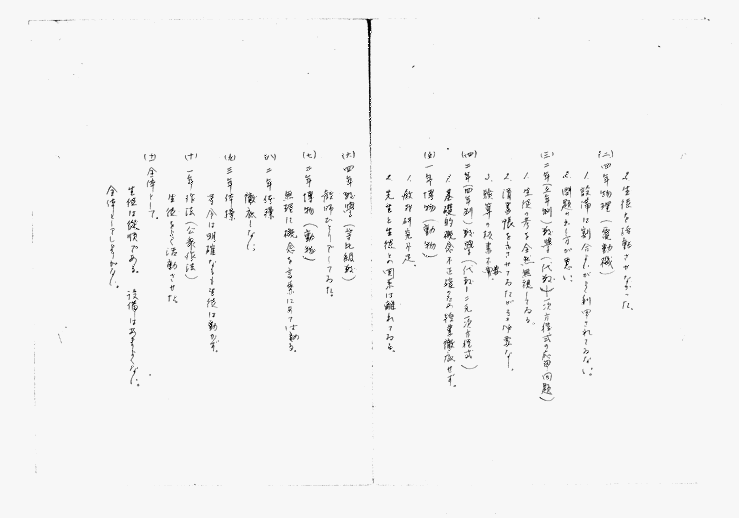 2. 生徒を活動させなかった。
(二) 四年物理(電動機)
1. 設備は割合にが利用されてゐない。
2. 問題の出し方が悪い。
(三) 二年(五年制)数学(代数、一次方程式の応用問題)
1. 生徒の考を全然無視してゐる。
2. 清書帳を写させてゐたがその必要なし。
3. 験算の板書不要。
(四) 二年(四年制)数学(代数 二元一次方程式)
1. 基礎的概念不正確なる為授業徹底せず。
(五) 一年博物(動物)
1. 教材研究不足。
2. 先生と生徒との関係は離れてゐる。
(六) 四年数学(等比級数)
教師ひとりでしてゐた。
(七) 二年博物(動物)
無理に概念を言葉に
(八) 二年体操
徹底しない。
(九) 三年体操
号令は明確なるも生徒は動かず。
(十) 一年作法(公衆作法)
生徒をよく活動させた。
(十一) 全体として。
生徒は従順である。設備はあまりよくない。
全体として